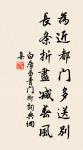 為近都門多送別
長條折盡減春風
白居易青門柳詞典網
集